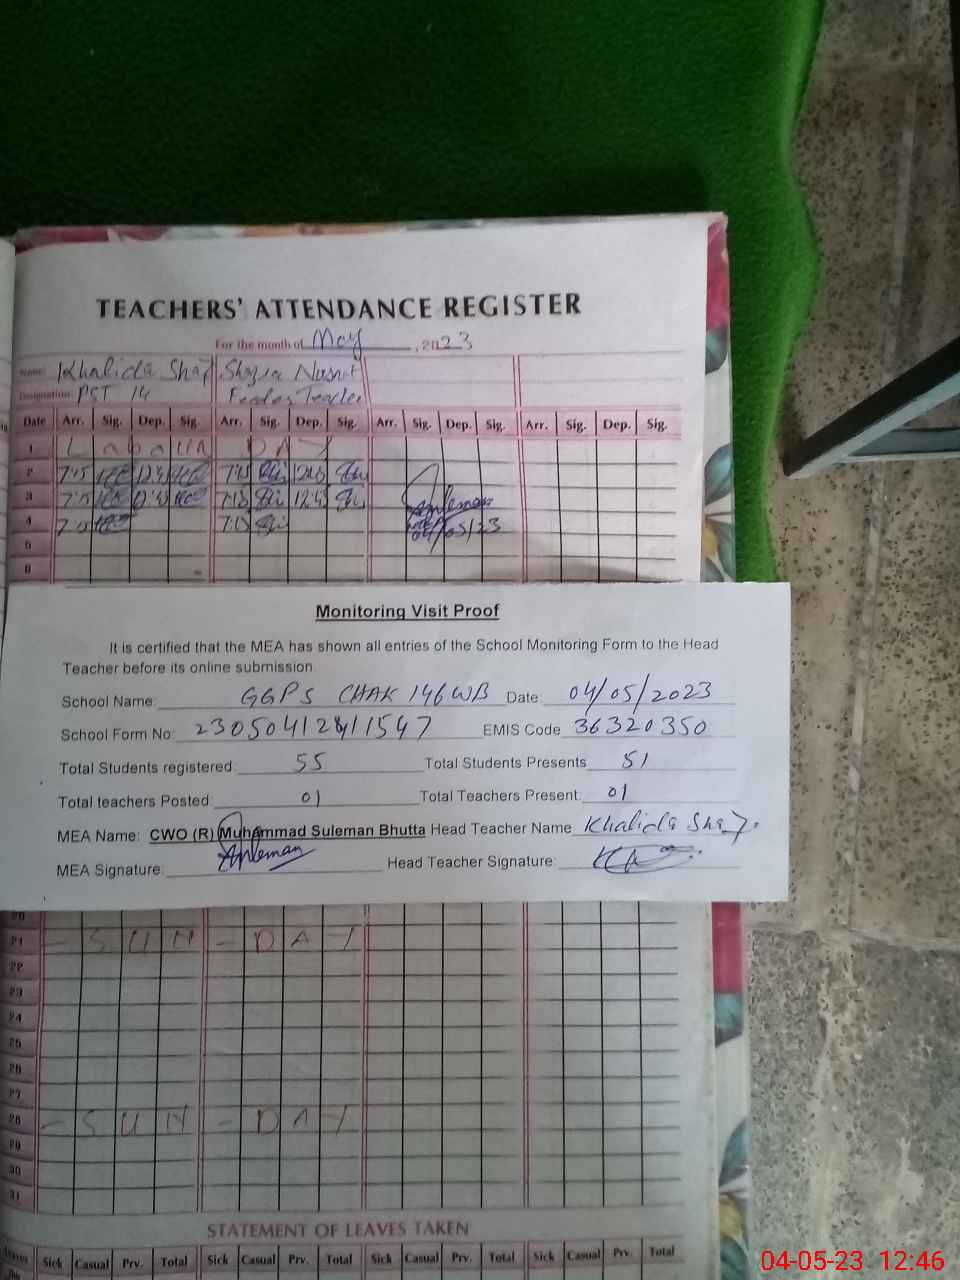 TEACHERS' ATTENDANCE REGISTER
For the month of May, 2023
Name: Khalida Shaz Shazia Nusrat
Designation: PST 14 Feeder Teacher
Date Arr. Sig. Dep. Sig. Arr. Sig. Dep. Sig. Arr. Sig. Dep. Sig. Arr. Sig. Dep. Sig.
1 Labour DAY
2 7:15 7:15
3 7:15 7:15 12:45
4 7:15 7:15 04/05/23
5
6
Monitoring Visit Proof
It is certified that the MEA has shown all entries of the School Monitoring Form to the Head
Teacher before its online submission.
School Name: GGPS CHAK 146WB Date: 04/05/2023
School Form No: EMIS Code 36320350
Total Students registered: 55 Total Students Presents 51
Total teachers Posted: 01 Total Teachers Present: 01
MEA Name: CWO (R) Muhammad Suleman Bhutta Head Teacher Name Khalida Shaz.
MEA Signature: Head Teacher Signature:
20
21 - SUN - DAY
22
23
24
25
26
27
28 - SUN - DAY
29
30
31
STATEMENT OF LEAVES TAKEN
Leaves Sick Casual Prv. Total Sick Casual Prv. Total Sick Casual Prv. Total Sick Casual Prv. Total
04-05-23 12:46